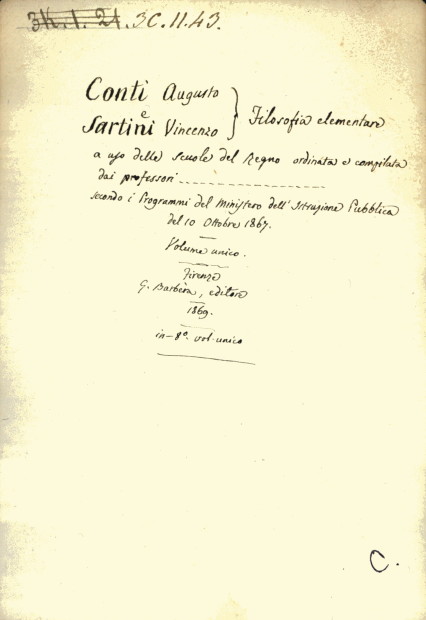 3K.1.21. 3C.11.43.
Conti Augusto
e
Sartini Vincenzo } Filosofia elementare
a uso delle scuole del Regno ordinata e compilata
dai professori
secondo i Programmi del Ministero dell'Istruzione Pubblica
del 10 Ottobre 1867.
Volume unico.
Firenze
G. Barbèra, editore
1869.
in-8º. vol. unico
C.